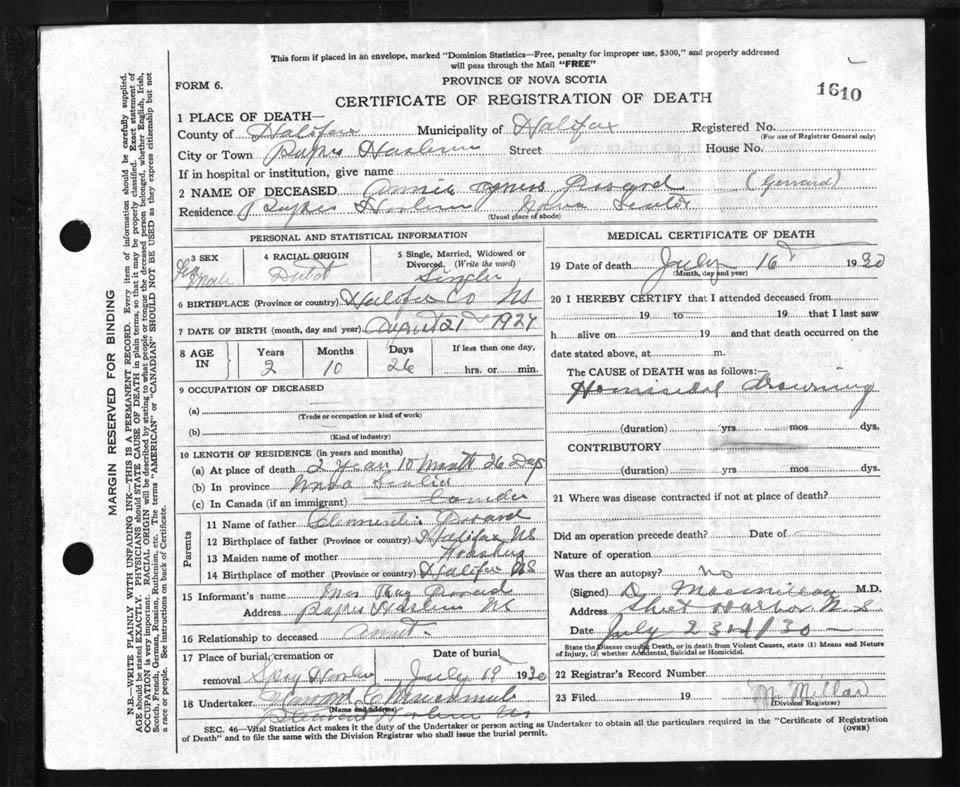 This form if placed in an envelope, marked "Dominion Statistics—Free, penalty for improper use, $300," and properly addressed
will pass through the Mail "FREE"
FORM 6.
PROVINCE OF NOVA SCOTIA
1610
CERTIFICATE OF REGISTRATION OF DEATH
1 PLACE OF DEATH—
County of Halifax Municipality of Halifax Registered No.
(For use of Registrar General only)
City or Town Street House No.
If in hospital or institution, give name
2 NAME OF DECEASED Annie Agness (Gerrard)
Residence Nova Scotia
(Usual place of abode)
PERSONAL AND STATISTICAL INFORMATION
3 SEX Female
4 RACIAL ORIGIN
5 Single, Married, Widowed or Divorced. (Write the word) Single
6 BIRTHPLACE (Province or country) Halifax Co NS
7 DATE OF BIRTH (month, day and year) August 21 1927
8 AGE IN Years Months Days If less than one day,
2 10 26 hrs. or min.
9 OCCUPATION OF DECEASED
(a)
(Trade or occupation or kind of work)
(b)
(Kind of industry)
10 LENGTH OF RESIDENCE (in years and months)
(a) At place of death 2 Year 10 Month 26 Days
(b) In province Nova Scotia
(c) In Canada (if an immigrant) Canada
Parents
11 Name of father
12 Birthplace of father (Province or country) Halifax NS
13 Maiden name of mother
14 Birthplace of mother (Province or country) Halifax NS
15 Informant's name Mrs
Address NS
16 Relationship to deceased Aunt
17 Place of burial, cremation or removal Date of burial
July 18 1930
18 Undertaker
(Name and address)
MEDICAL CERTIFICATE OF DEATH
19 Date of death July 16 1930
(Month, day and year)
20 I HEREBY CERTIFY that I attended deceased from
19 to 19 that I last saw
h alive on 19 and that death occurred on the
date stated above, at m.
The CAUSE of DEATH was as follows:—
Homicidal drowning
(duration) yrs mos dys.
CONTRIBUTORY
(duration) yrs mos dys.
21 Where was disease contracted if not at place of death?
Did an operation precede death? Date of
Nature of operation
Was there an autopsy? no
(Signed) D. Macmillan M.D.
Address Sheet Harbor N S
Date July 23rd/30
State the Disease causing Death, or in death from Violent Causes, state (1) Means and Nature
of Injury, (2) whether Accidental, Suicidal or Homicidal.
22 Registrar's Record Number
23 Filed 19
(Division Registrar)
SEC. 46—Vital Statistics Act makes it the duty of the Undertaker or person acting as Undertaker to obtain all the particulars required in the "Certificate of Registration
of Death" and to file the same with the Division Registrar who shall issue the burial permit. (OVER)
MARGIN RESERVED FOR BINDING
N.B.—WRITE PLAINLY WITH UNFADING INK—THIS IS A PERMANENT RECORD. Every item of information should be carefully supplied.
AGE should be stated EXACTLY. PHYSICIANS should STATE CAUSE OF DEATH in plain terms, so that it may be properly classified. Exact statement of
OCCUPATION is very important. RACIAL ORIGIN will be described by stating to what people or tongue the deceased person belonged, whether English, Irish,
Scotch, French, German, Russian, Ruthenian, etc. The terms "AMERICAN" or "CANADIAN" SHOULD NOT BE USED as they express citizenship but not
a race or people. See instructions on back of Certificate.